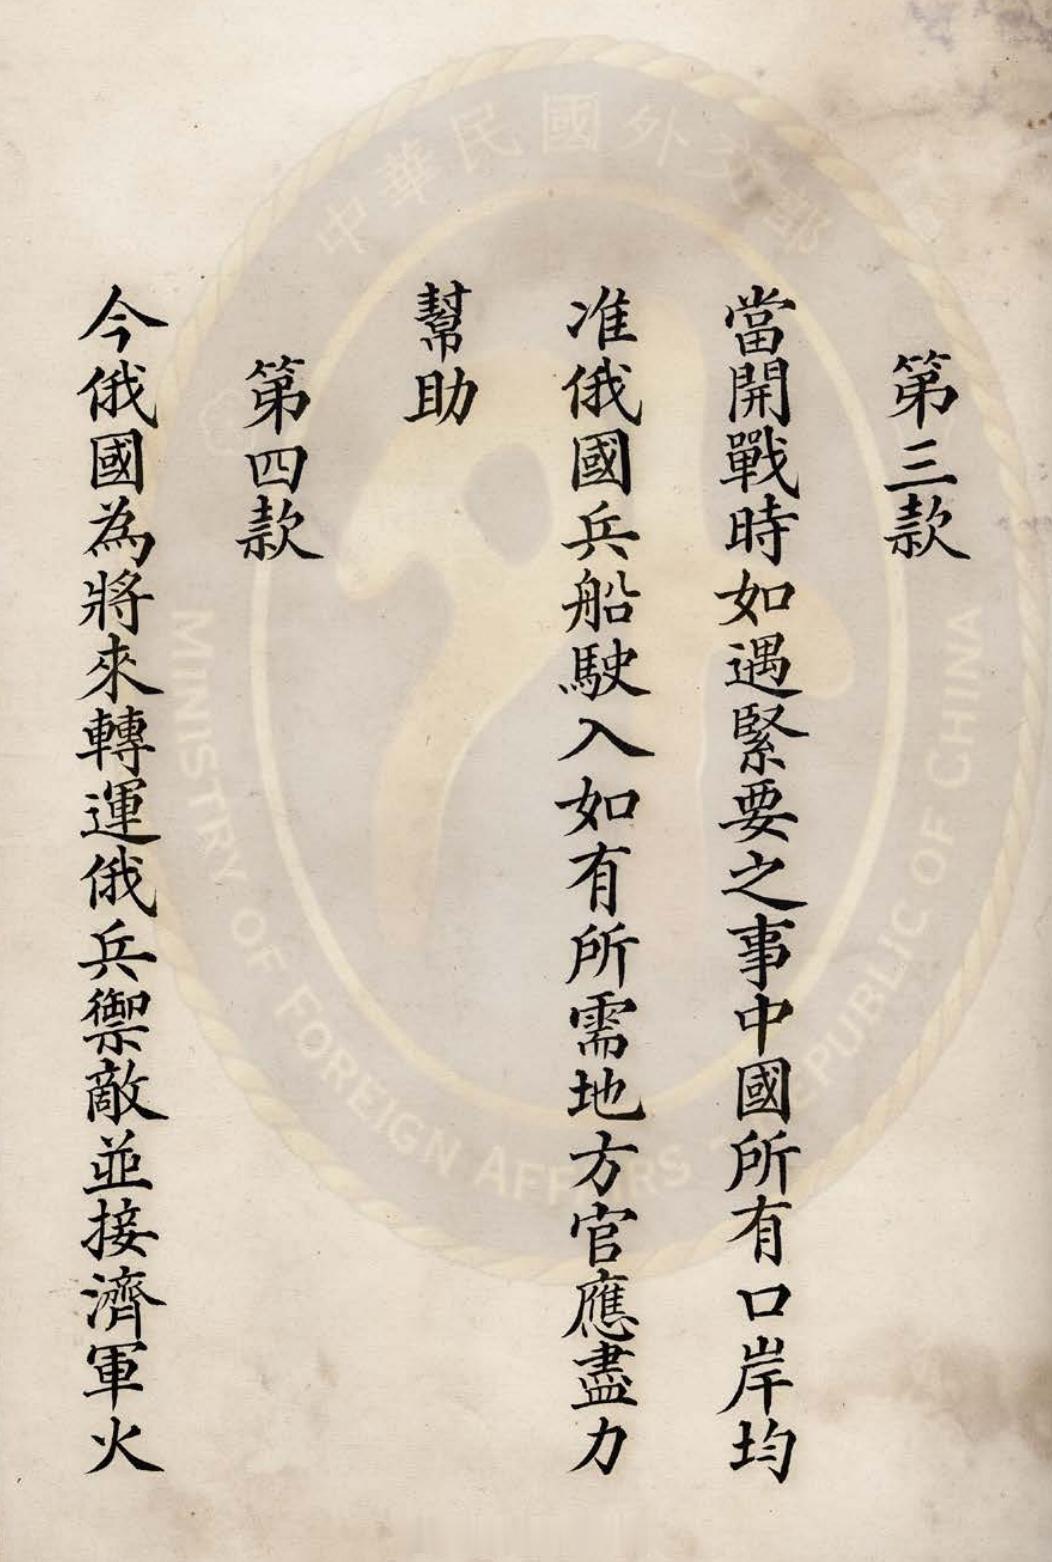 第三款
當開戰時如遇緊要之事中國所有口岸均
准俄國兵船駛入如有所需地方官應盡力
幫助
第四款
今俄國為將來轉運俄兵禦敵並接濟軍火
中華民國外交部
MINISTRY OF FOREIGN AFFAIRS REPUBLIC OF CHINA